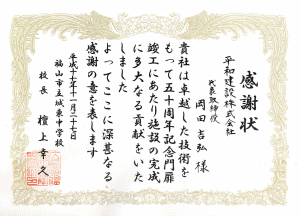 感謝状
平和建設株式会社
代表取締役
岡田吉弘様
貴社は卓越した技術を
もって五十周年記念門扉
竣工にあたり施設の完成
に多大なる貢献をいた
しました
よってここに深甚なる
感謝の意を表します
平成十六年十一月二十七日
福山市立城東中学校
校長 檀上幸久